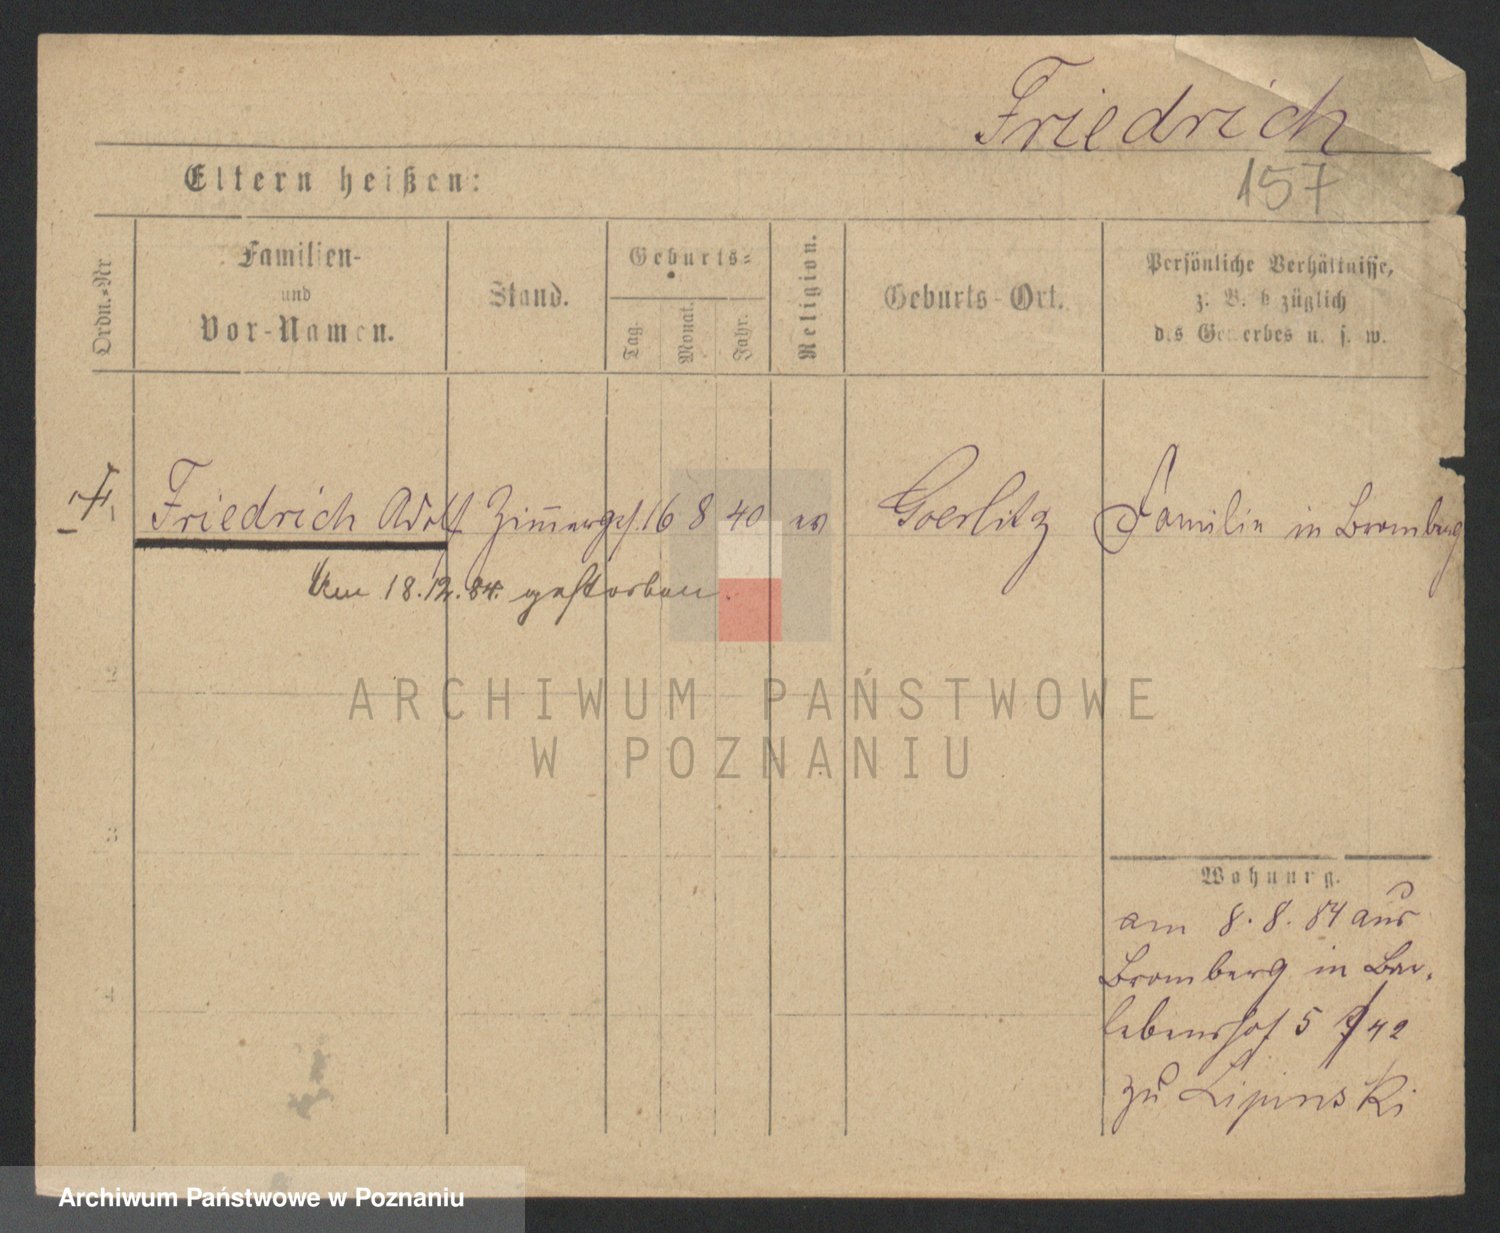 Friedrich
157
Eltern heißen:
Ordn.-Nr
Familien-
und
Vor-Namen.
Stand.
Geburts-
Tag.
Monat.
Jahr.
Religion.
Geburts-Ort.
Persönliche Verhältnisse,
z. B. bezüglich
des Gewerbes u. s. w.
Friedrich Adolf Zimmerges. 16 8 40 ev Goerlitz Familie in Bromberg
Am 18.12.84. gestorben.
2
ARCHIWUM PAŃSTWOWE
W POZNANIU
3
Wohnung.
am 8. 8. 84 aus
Bromberg in Bar-
lebenshof 5 742
zu Lipinski
4
Archiwum Państwowe w Poznaniu